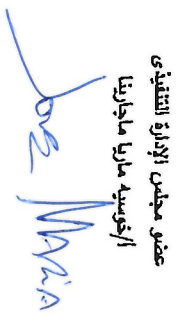 عضو مجلس الإدارة التنفيذى
أ/خوسيه ماريا ماجارينا
Jose MARIA